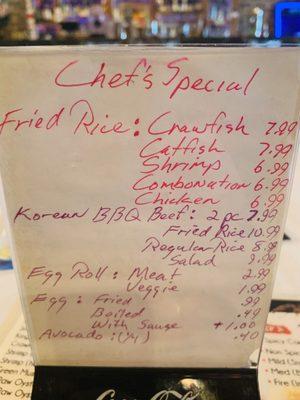 Chef's Special
Fried Rice: Crawfish 7.99
Catfish 7.99
Shrimp 6.99
Combonation 6.99
Chicken 6.99
Korean BBQ Beef: 2 pc 7.99
Fried Rice 10.99
Regular Rice 8.99
Salad 9.99
Egg Roll: Meat 2.99
Veggie 1.99
Egg: Fried .99
Boiled .49
With Sauce +1.00
Avocado: (1/4) .40